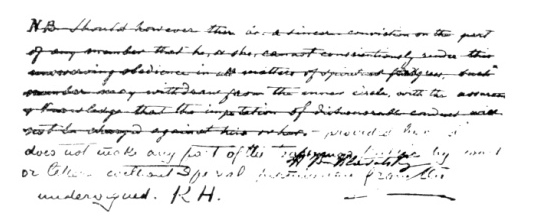 N.B. Should however there be a sincere conviction on the part
of any member that he, or she, cannot conscientiously render this
unwavering obedience in all matters of spiritual progress, such
member may withdraw from the inner circle, with the assurance
& knowledge that the imputation of dishonorable conduct will
not be charged against him or her — provided he
does not make any part of the by word
or letter without special permission from the
undersigned. K H.